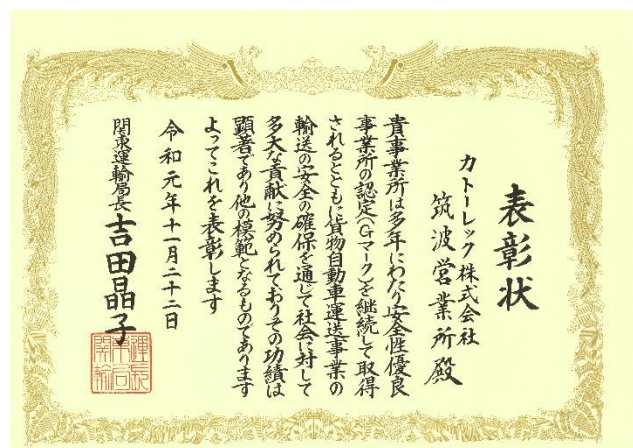 表彰状
カトーレック株式会社
筑波営業所殿
貴事業所は多年にわたり安全性優良
事業所の認定(Gマーク)を継続して取得
されるとともに貨物自動車運送事業の
輸送の安全の確保を通じて社会に対して
多大な貢献に努められておりその功績は
顕著であり他の模範となるものであります
よってこれを表彰します
令和元年十一月二十二日
関東運輸局長 吉田晶子